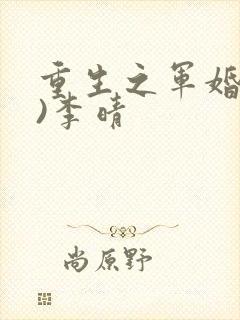 重生之军婚
)李晴
尚原野